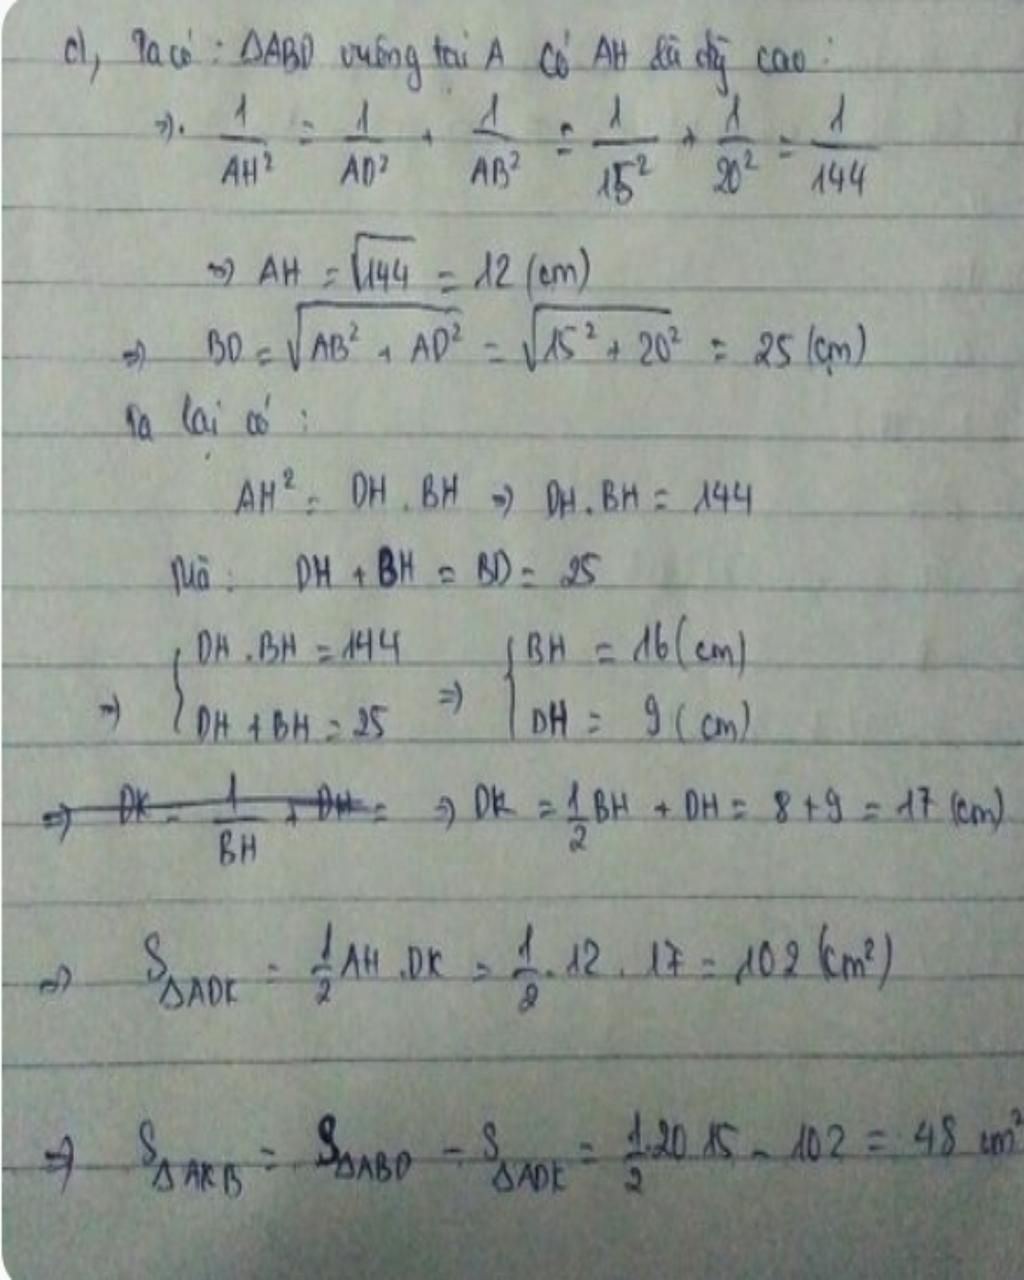 c), Ta có : ΔABD vuông tại A có AH là đg cao :
=> 1/AH² = 1/AD² + 1/AB² = 1/15² + 1/20² = 1/144
=> AH = √144 = 12 (cm)
=> BD = √(AB² + AD²) = √(15² + 20²) = 25 (cm)
Ta lại có :
AH² = DH . BH => DH . BH = 144
Mà : DH + BH = BD = 25
=> { DH . BH = 144 => { BH = 16 (cm)
DH + BH = 25 DH = 9 (cm)
=> DK = 1/BH + DH = => DK = 1/2 BH + DH = 8 + 9 = 17 (cm)
=> SΔADK = 1/2 AH . DK = 1/2 . 12 . 17 = 102 (cm²)
=> SΔAKB = SΔABD - SΔADK = 1/2 . 20 . 15 - 102 = 48 cm²